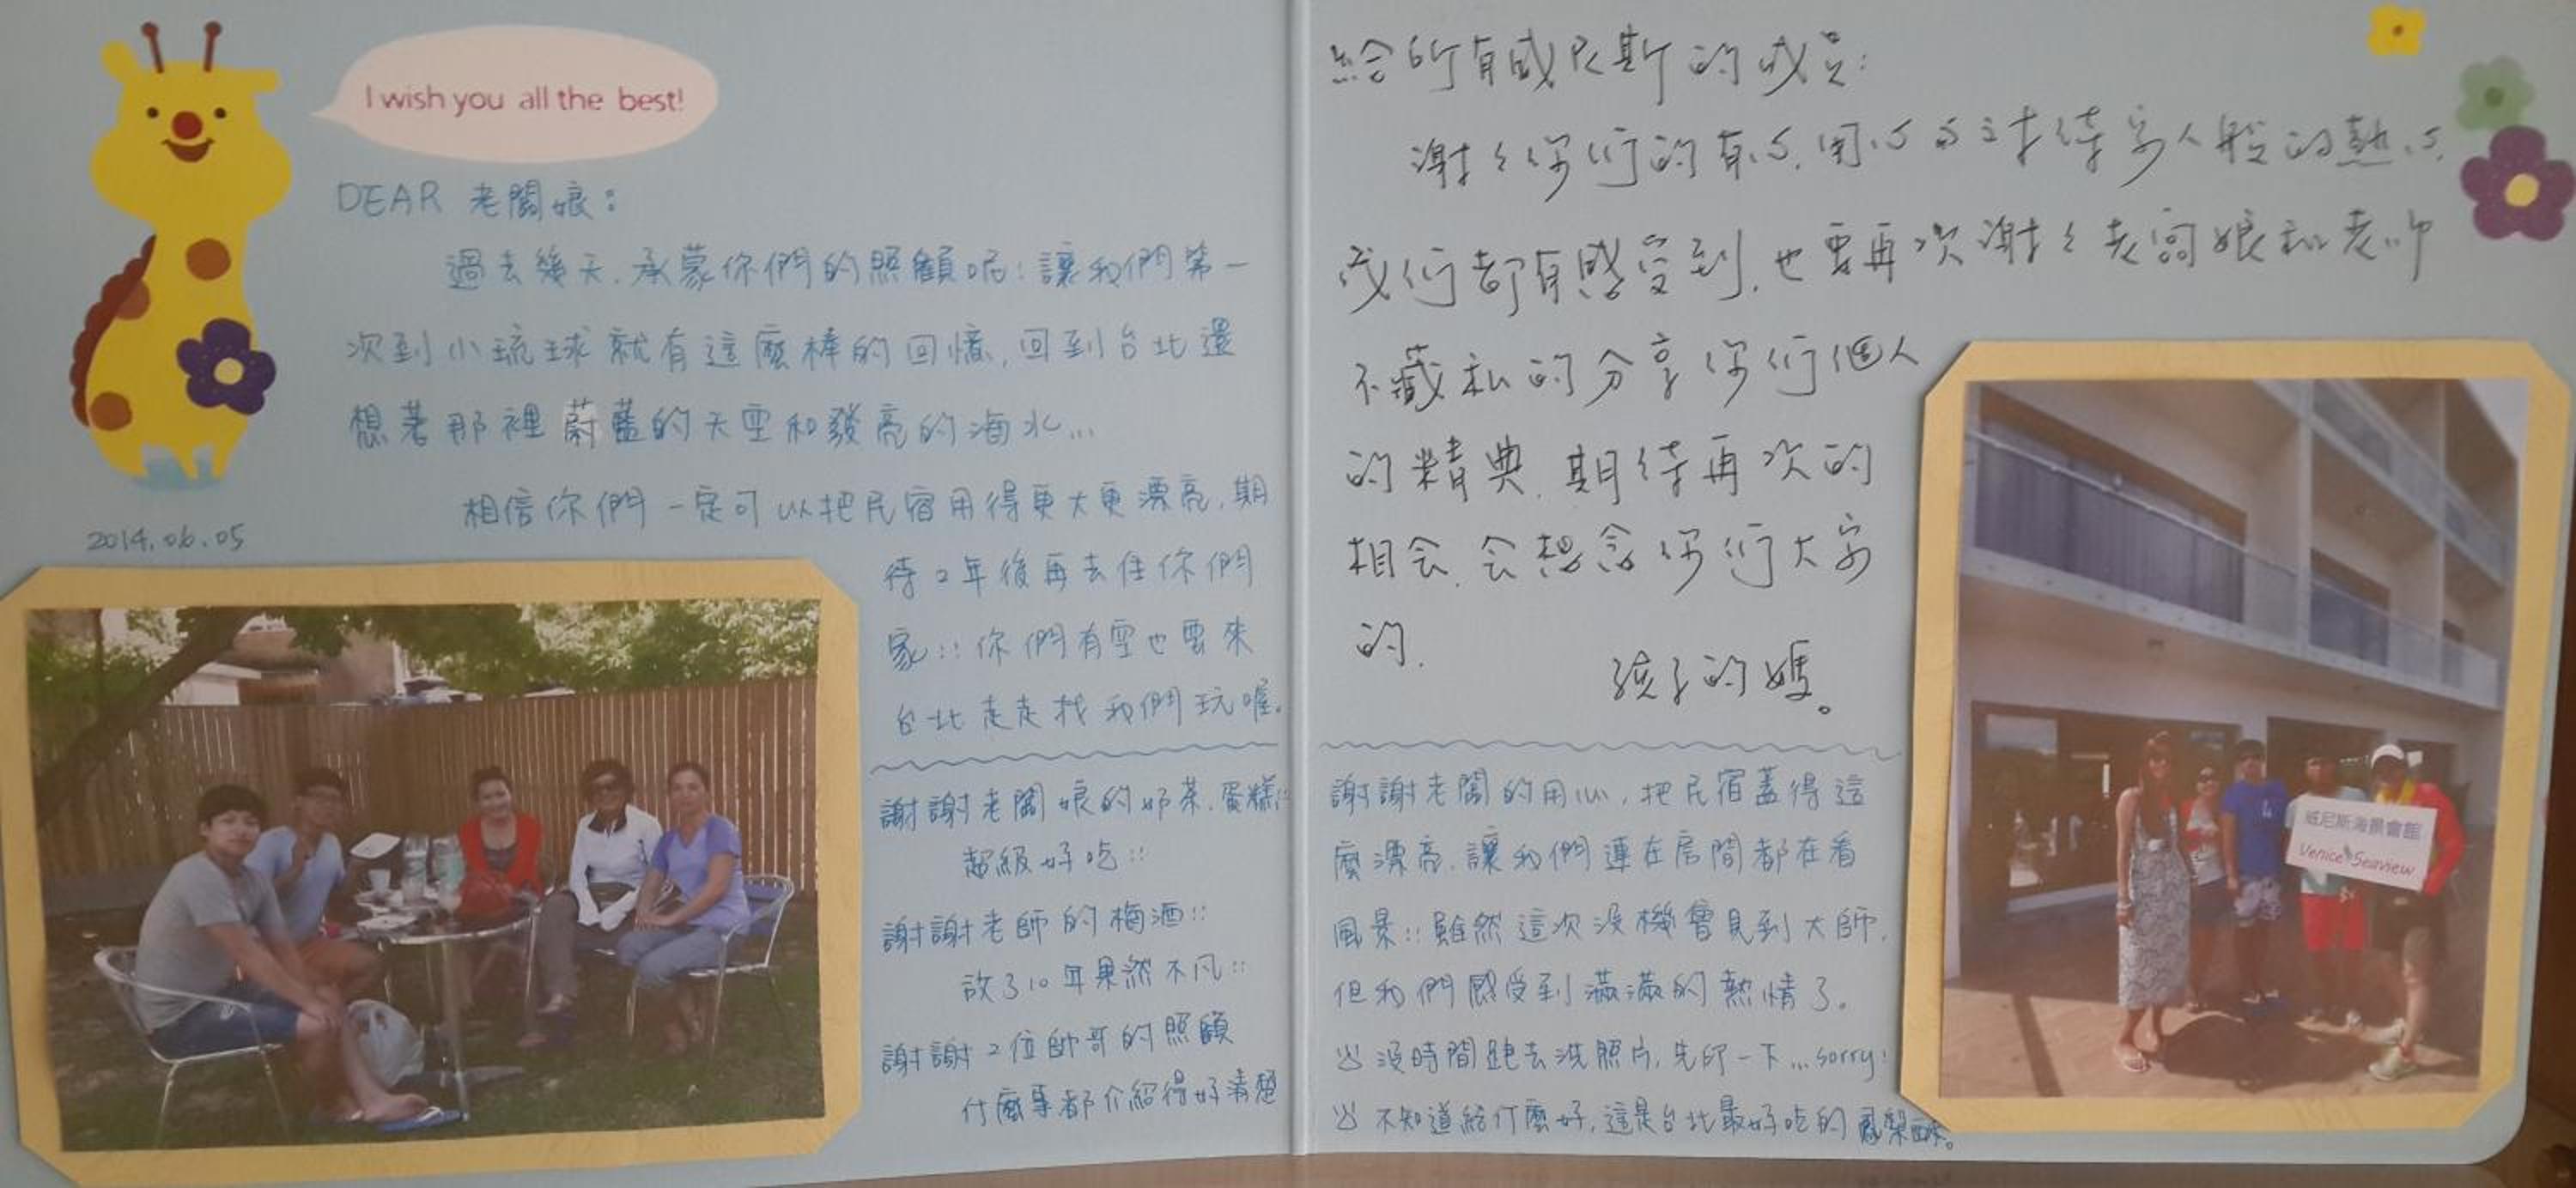 I wish you all the best!
DEAR 老闆娘：
過去幾天，承蒙你們的照顧呢！讓我們第一
次到小琉球就有這麼棒的回憶，回到台北還
想著那裡蔚藍的天空和發亮的海水...
相信你們一定可以把民宿用得更大更漂亮，期
待2年後再去住你們
家!! 你們有空也要來
台北走走找我們玩喔。
2014.06.05
謝謝老闆娘的奶茶、蛋糕!!
超級好吃!!
謝謝老師的梅酒!!
放了10年果然不凡!!
謝謝2位帥哥的照顧
什麼事都介紹得好清楚
給所有威尼斯的成員：
謝々你们的有心，用心与対待家人般的熱心，
我们都有感受到，也要再次謝々老闆娘和老师
不藏私的分享你们個人
的精典，期待再次的
相会，会想念你们大家
的.
孩子的媽。
謝謝老闆的用心，把民宿蓋得這
麼漂亮，讓我們連在房間都在看
風景!! 雖然這次沒機會見到大師，
但我們感受到滿滿的熱情了。
沒時間跑去洗照片，先印一下...sorry!
不知道給什麼好，這是台北最好吃的鳳梨酥。
威尼斯海景會館
Venice Seaview